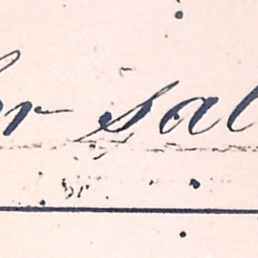 or sal